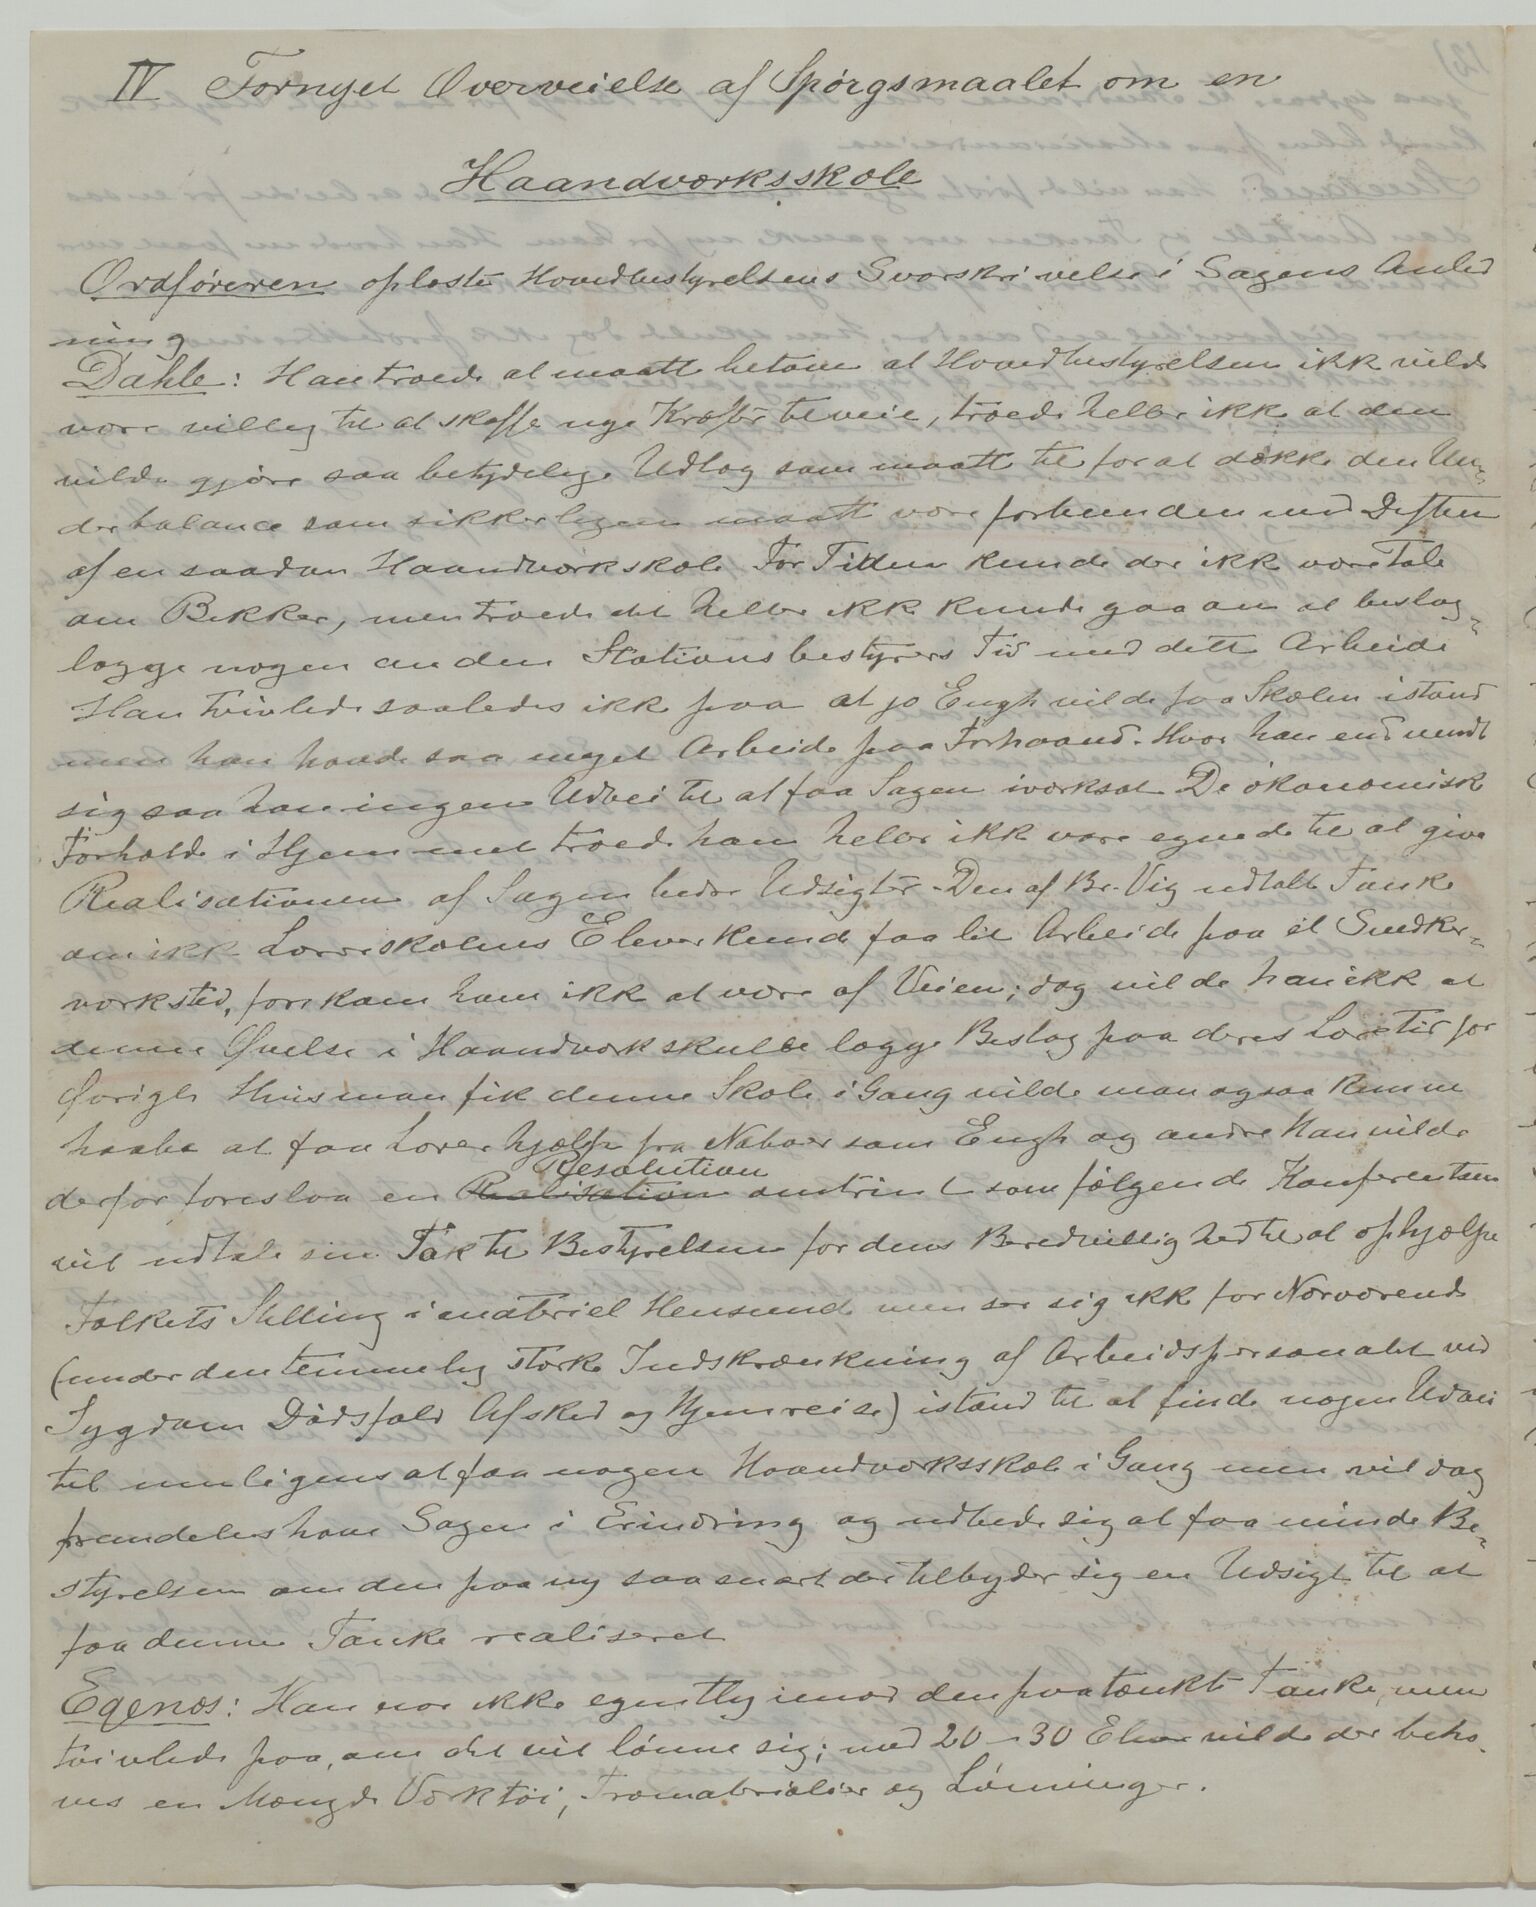 IV Fornyet Overveielse af Spørgsmaalet om en
Haandværksskole
Ordføreren oplæste Hovedbestyrelsens Svarskrivelse i Sagens Anled
ning
Dahle: Han troede at maatte betone at Hovedbestyrelsen ikke vilde
være villig til at skaffe nye Kræfter tilveie, troede heller ikke at den
vilde gjøre saa betydelige Udlæg som maatte til for at dække den Un-
derbalance som sikkerligen maatte være forbunden med Driften
af en saadan Haandværkskole For Tiden kunde der ikke være Tale
om Bekker, men troede det heller ikke kunde gaa an at beslag-
lægge nogen anden Stationsbestyrers Tid med dette Arbeide
Han tvivlede saaledes ikke paa at jo Engh vilde faa Skolen istand
men han havde saa meget Arbeide paa Forhaand. Hvor han end vendte
sig saa han ingen Udvei til at faa Sagen iværksat De økonomiske
Forholde i Hjemmet troede han heller ikke være egnede til at give
Realisationen af Sagen bedre Udsigter. Den af Br. Vig udtalte Tanke
om ikke Lærerskolens Elever kunde faa lit Arbeide paa et Snedker-
værksted, forekom ham ikke at være af Veien; dog vilde han ikke at
denne Øvelse i Haandværk skulle lægge Beslag paa deres Læretid for
Øvrigt Hvis man fik denne Skole i Gang vilde man ogsaa kunne
haabe at faa Lærerhjælp fra Naboer som Engh og andre Han vilde
derfor foreslaa en Realisation Resolution omtrint som følgende Konferentsen
vil udtale sin Tak til Bestyrelsen for dens Beredvillighed til at ophjælpe
Folkets Stilling i materiel Henseende men ser sig ikke for Nærværende
(under den temmelig stærke Indskrænkning af Arbeidspersonalet ved
Sygdom Dødsfald Afsked og Hjemreise) istand til at finde nogen Udvei
til muligens at faa nogen Haandværksskole i Gang men vil dog
fremdeles have Sagen i Erindring og udbede sig at faa minde Be-
styrelsen om den paa ny saa snart der tilbyder sig en Udsigt til at
faa denne Tanke realiseret
Egenæs: Han var ikke egentlig imod den paatænkte Tanke, men
tvivlede paa, om det vil lønne sig; med 20 - 30 Elever vilde der beho-
ves en Mængde Værktøi, Træmaterialier og Lønninger.